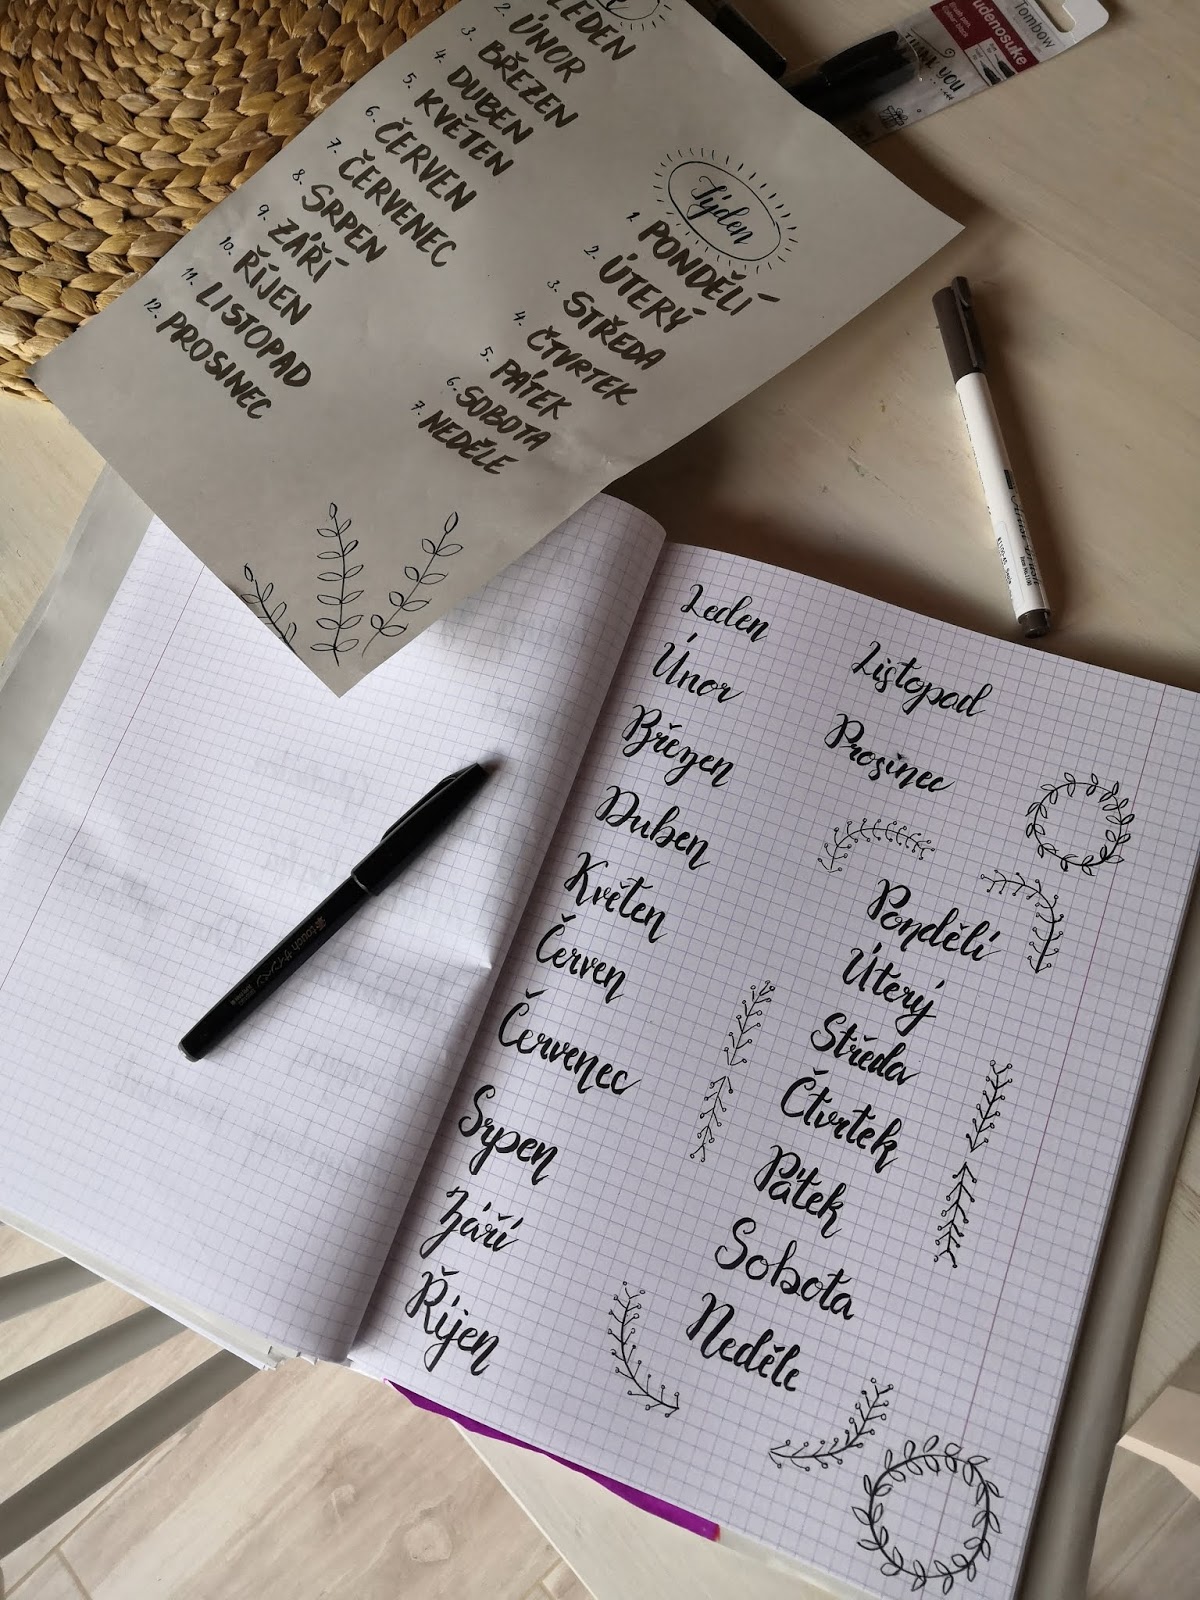 LEDEN
2. ÚNOR
3. BŘEZEN
4. DUBEN
5. KVĚTEN
6. ČERVEN
7. ČERVENEC
8. SRPEN
9. ZÁŘÍ
10. ŘÍJEN
11. LISTOPAD
12. PROSINEC
Týden
1. PONDĚLÍ
2. ÚTERÝ
3. STŘEDA
4. ČTVRTEK
5. PÁTEK
6. SOBOTA
7. NEDĚLE
Tombow
udenosuke
THANK YOU
touch サインペン
Leden
Únor
Březen
Duben
Květen
Červen
Červenec
Srpen
Září
Říjen
Listopad
Prosinec
Pondělí
Úterý
Středa
Čtvrtek
Pátek
Sobota
Neděle